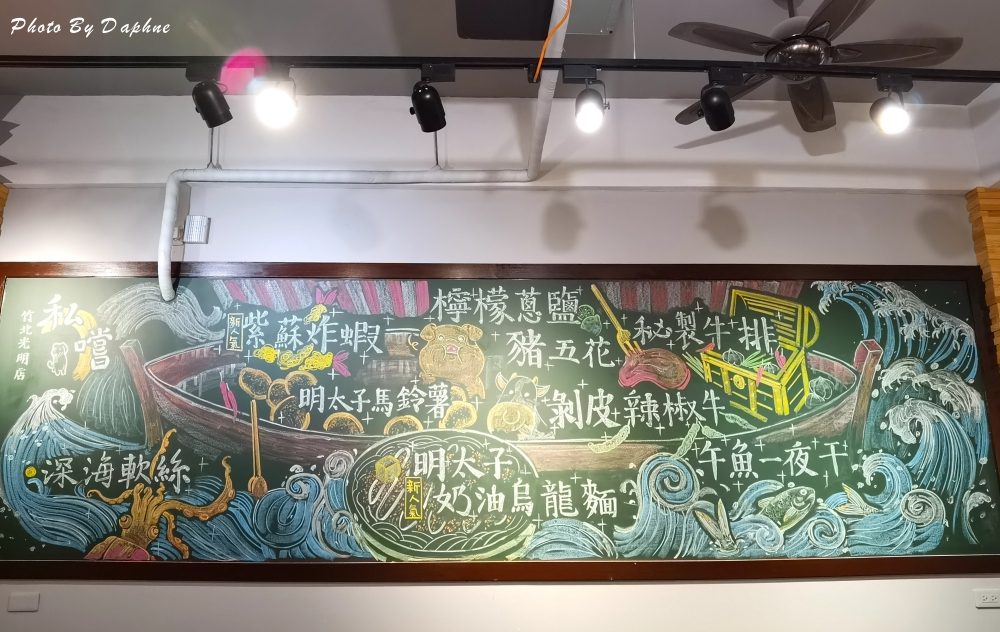 Photo By Daphne
私嚐
竹北光明店
新人氣
紫蘇炸蝦
明太子馬鈴薯
檸檬蔥鹽
豬五花
秘製牛排
剝皮辣椒牛
深海軟絲
明太子
新人氣
奶油烏龍麵
午魚一夜干